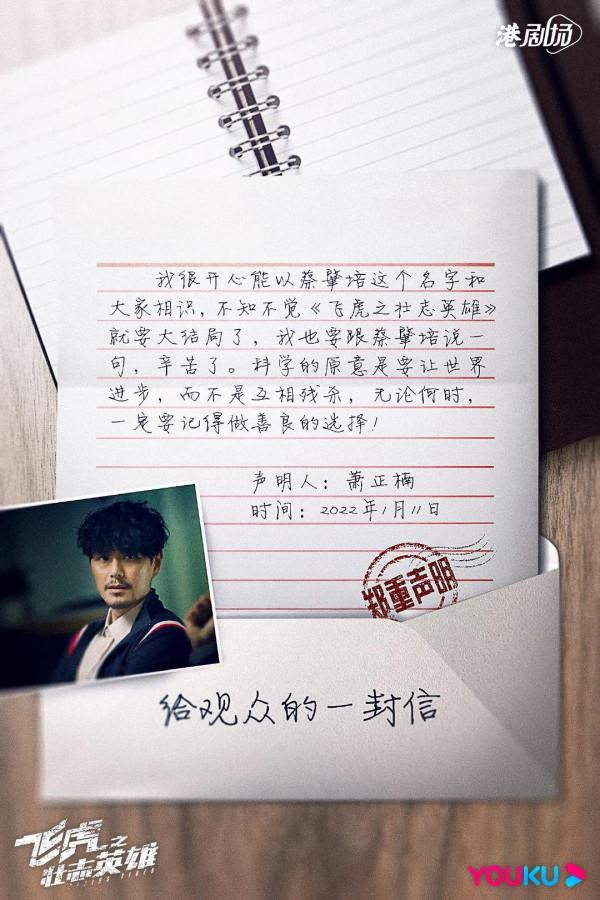 港剧场
我很开心能以蔡肇培这个名字和
大家相识，不知不觉《飞虎之壮志英雄》
就要大结局了，我也要跟蔡肇培说一
句，辛苦了。科学的原意是要让世界
进步，而不是互相残杀，无论何时，
一定要记得做善良的选择！
声明人：萧正楠
时间：2022年1月11日
郑重声明
给观众的一封信
飞虎之
壮志英雄
YOUKU